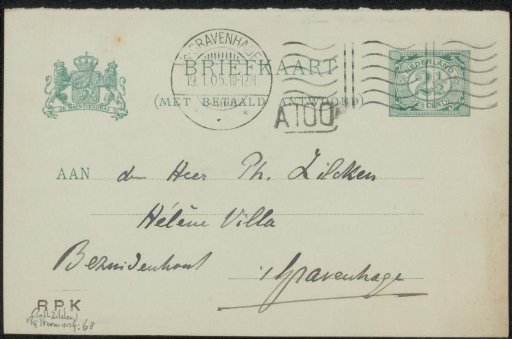 'S GRAVENHAGE
BRIEFKAART
(MET BETAALD ANTWOORD)
NEDERLAND
2½
CENT
A100
AAN den Heer Ph. Zilcken
Hélène Villa
Bezuidenhout 's Gravenhage
RPK